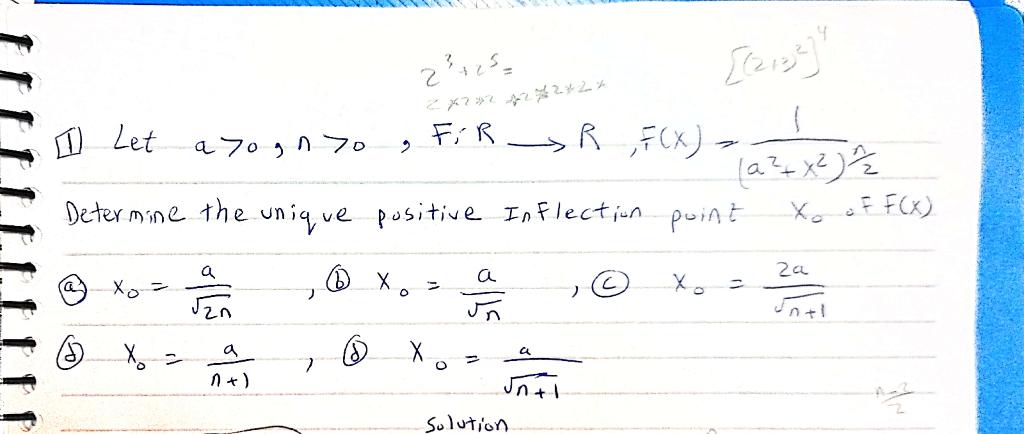 2³+2⁵=
[(2+3)²]⁴
2×2×2 +2×2×2×2×
[1] Let a>0, n>0, F: R → R, F(X) = 1/(a²+x²)^(n/2)
Determine the unique positive Inflection point X₀ of F(X)
ⓐ X₀ = a/√2n , ⓑ X₀ = a/√n , ⓒ X₀ = 2a/√n+1
ⓓ X₀ = a/n+1 , ⓓ X₀ = a/√n+1
Solution